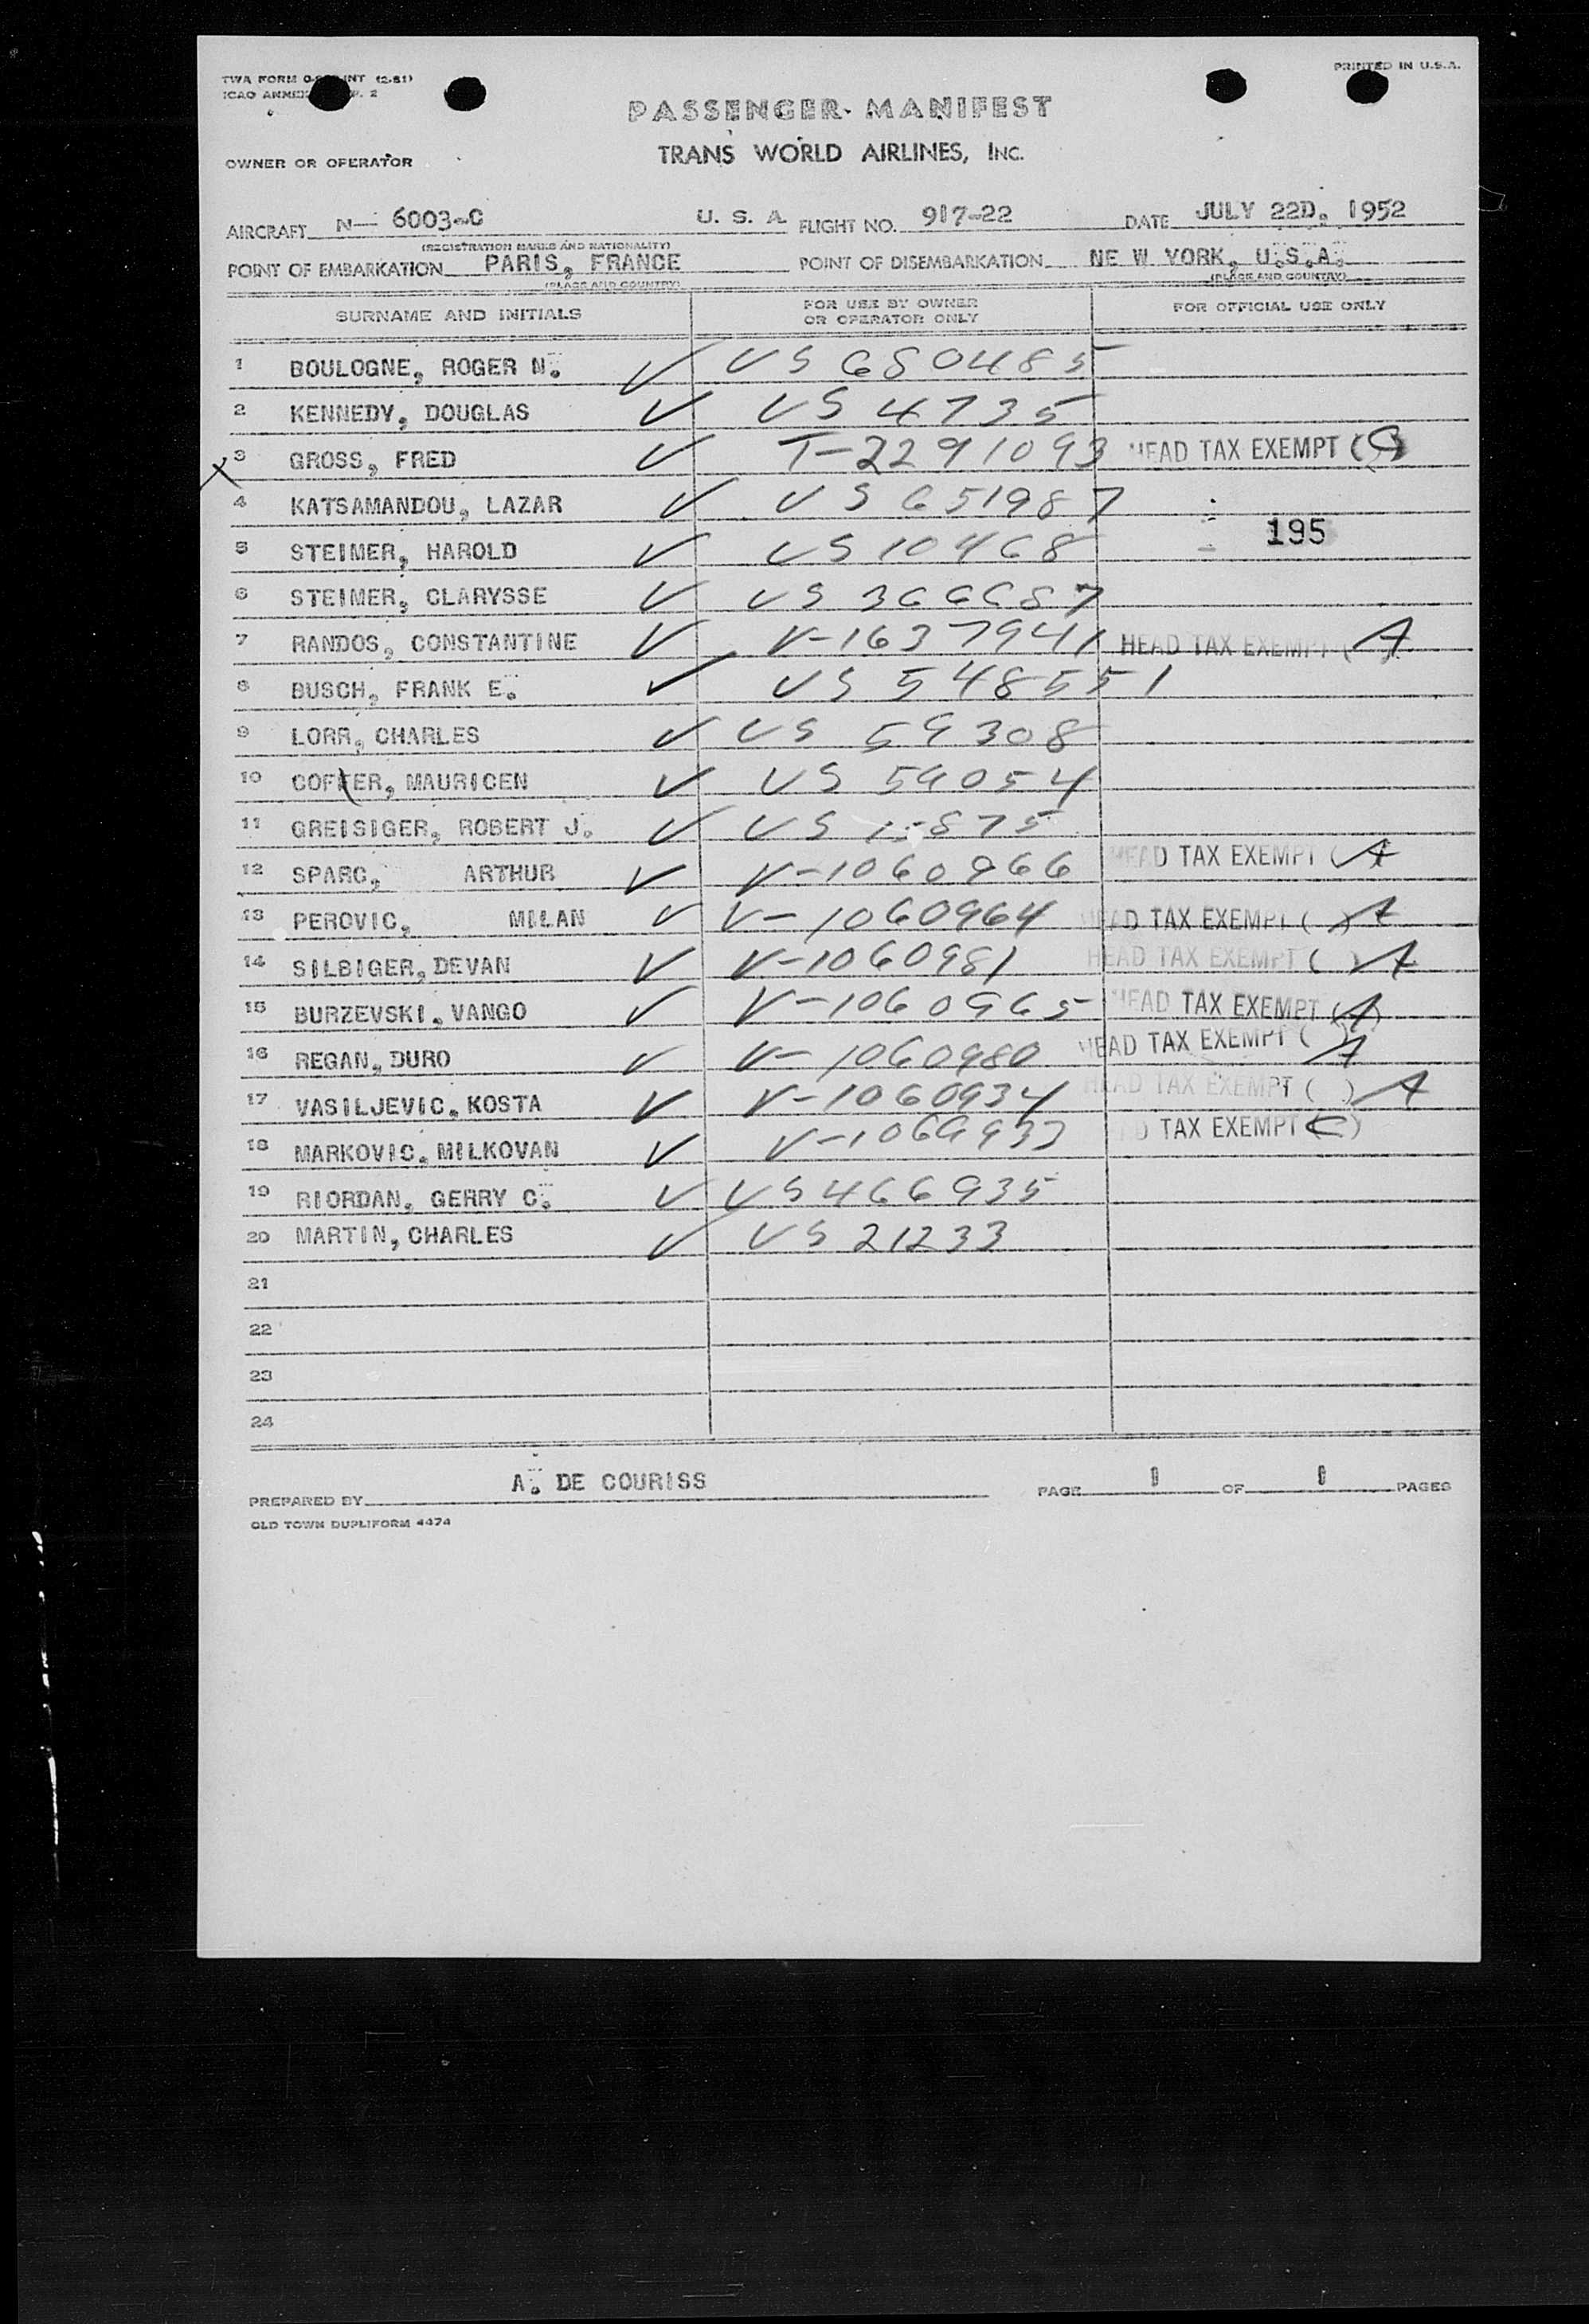 TWA FORM INT (2-51)
PRINTED IN U.S.A.
ICAO ANNEX P. 2
PASSENGER MANIFEST
OWNER OR OPERATOR
TRANS WORLD AIRLINES, INC.
AIRCRAFT N— 6003-C U. S. A. FLIGHT NO. 917-22 DATE JULY 22D. 1952
(REGISTRATION MARKS AND NATIONALITY)
POINT OF EMBARKATION PARIS, FRANCE POINT OF DISEMBARKATION NE W YORK, U.S.A.
(PLACE AND COUNTRY) (PLACE AND COUNTRY)
SURNAME AND INITIALS FOR USE BY OWNER OR OPERATOR ONLY FOR OFFICIAL USE ONLY
1 BOULOGNE, ROGER N. ✓ US 680485
2 KENNEDY, DOUGLAS ✓ US 4735
X 3 GROSS, FRED ✓ T-2291093 HEAD TAX EXEMPT (C)
4 KATSAMANDOU, LAZAR ✓ US 651987
195
5 STEIMER, HAROLD ✓ US 10468
6 STEIMER, CLARYSSE ✓ US 366687
7 RANDOS, CONSTANTINE ✓ V-1637941 HEAD TAX EXEMPT (A)
8 BUSCH, FRANK E. ✓ US 548551
9 LORR, CHARLES ✓ US 59308
10 COFFER, MAURICEN ✓ US 59054
11 GREISIGER, ROBERT J. ✓ US
12 SPARC, ARTHUR ✓ V-1060966 HEAD TAX EXEMPT (A
13 PEROVIC, MILAN ✓ V-1060964 HEAD TAX EXEMPT ( ) A
14 SILBIGER, DEVAN ✓ V-1060981 HEAD TAX EXEMPT ( ) A
15 BURZEVSKI, VANGO ✓ V-1060965 HEAD TAX EXEMPT (A)
16 REGAN, DURO ✓ V-1060980 HEAD TAX EXEMPT ( ) A
17 VASILJEVIC, KOSTA ✓ V-1060934 HEAD TAX EXEMPT ( ) A
18 MARKOVIC, MILKOVAN ✓ V-1069933 D TAX EXEMPT (C)
19 RIORDAN, GERRY C. ✓ US 466935
20 MARTIN, CHARLES ✓ US 21233
21
22
23
24
PREPARED BY A. DE COURISS PAGE 1 OF 1 PAGES
OLD TOWN DUPLIFORM 4474